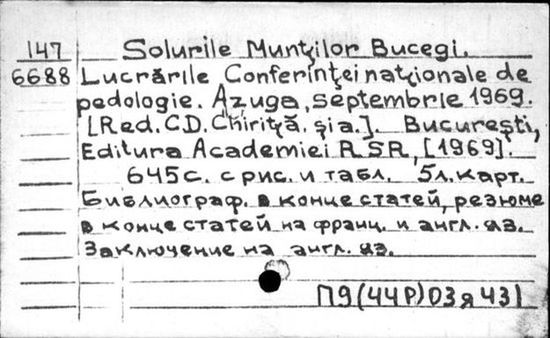 147 Solurile Munţilor Bucegi.
6688 Lucrările Conferinţei naţionale de
pedologie. Azuga, septembrie 1969.
[Red. C.D. Chiriţă. şi a.]. Bucureşti,
Editura Academiei RSR, [1969].
645с. с рис. и табл. 5л. карт.
Библиограф. в конце статей, резюме
в конце статей на франц. и англ. яз.
Заключение на англ. яз.
П9(44Р)03я431